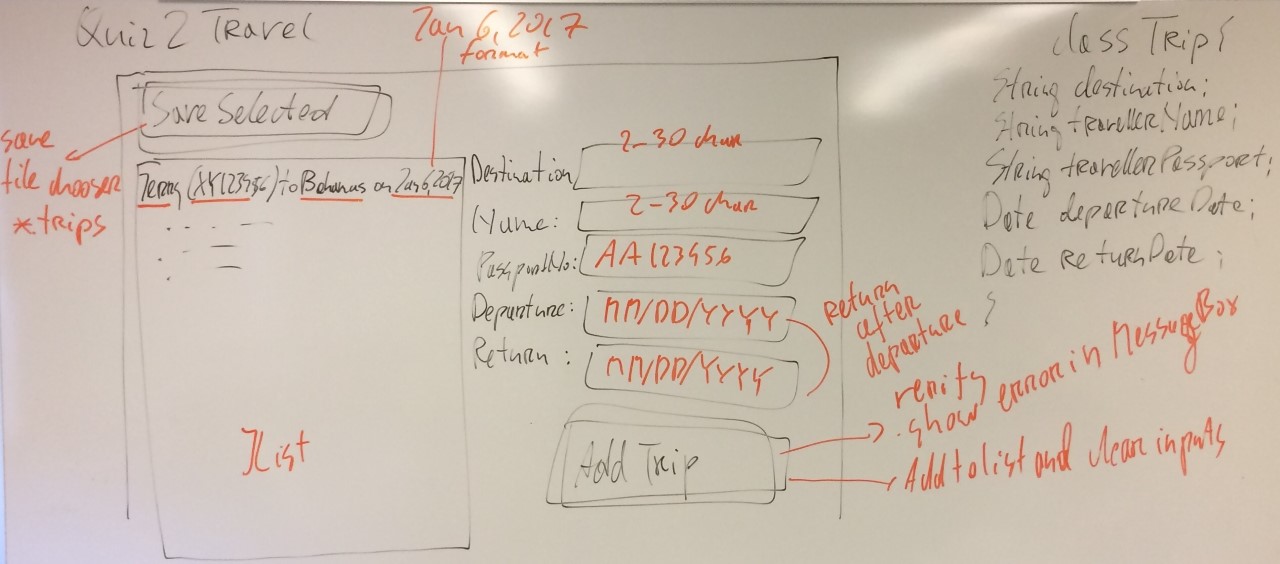 Quiz 2 Travel
Jan 6, 2017
format
Save Selected
save
file chooser
*.trips
Jerry (XY123456) to Bahamas on Jan 6, 2017
JList
Destination
2-30 char
Name:
2-30 char
PassportNo:
AA123456
Departure:
MM/DD/YYYY
Return :
MM/DD/YYYY
return
after
departure
Add Trip
verify
. show error in MessageBox
Add to list and clear inputs
class Trip {
String destination;
String travellerName;
String travellerPassport;
Date departureDate;
Date returnDate;
}